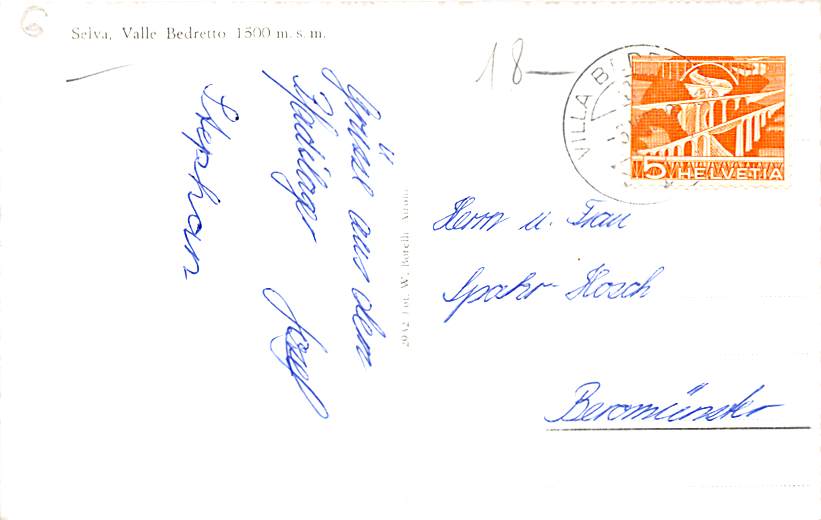 Selva, Valle Bedretto 1500 m. s. m.
18—
VILLA BEDRE
5 HELVETIA
Grüsse aus dem
Pfadilager Josef
Stephan
2942 Fot. W. Borelli Airolo
Herrn u. Frau
Spahr-Kosch
Beromünster